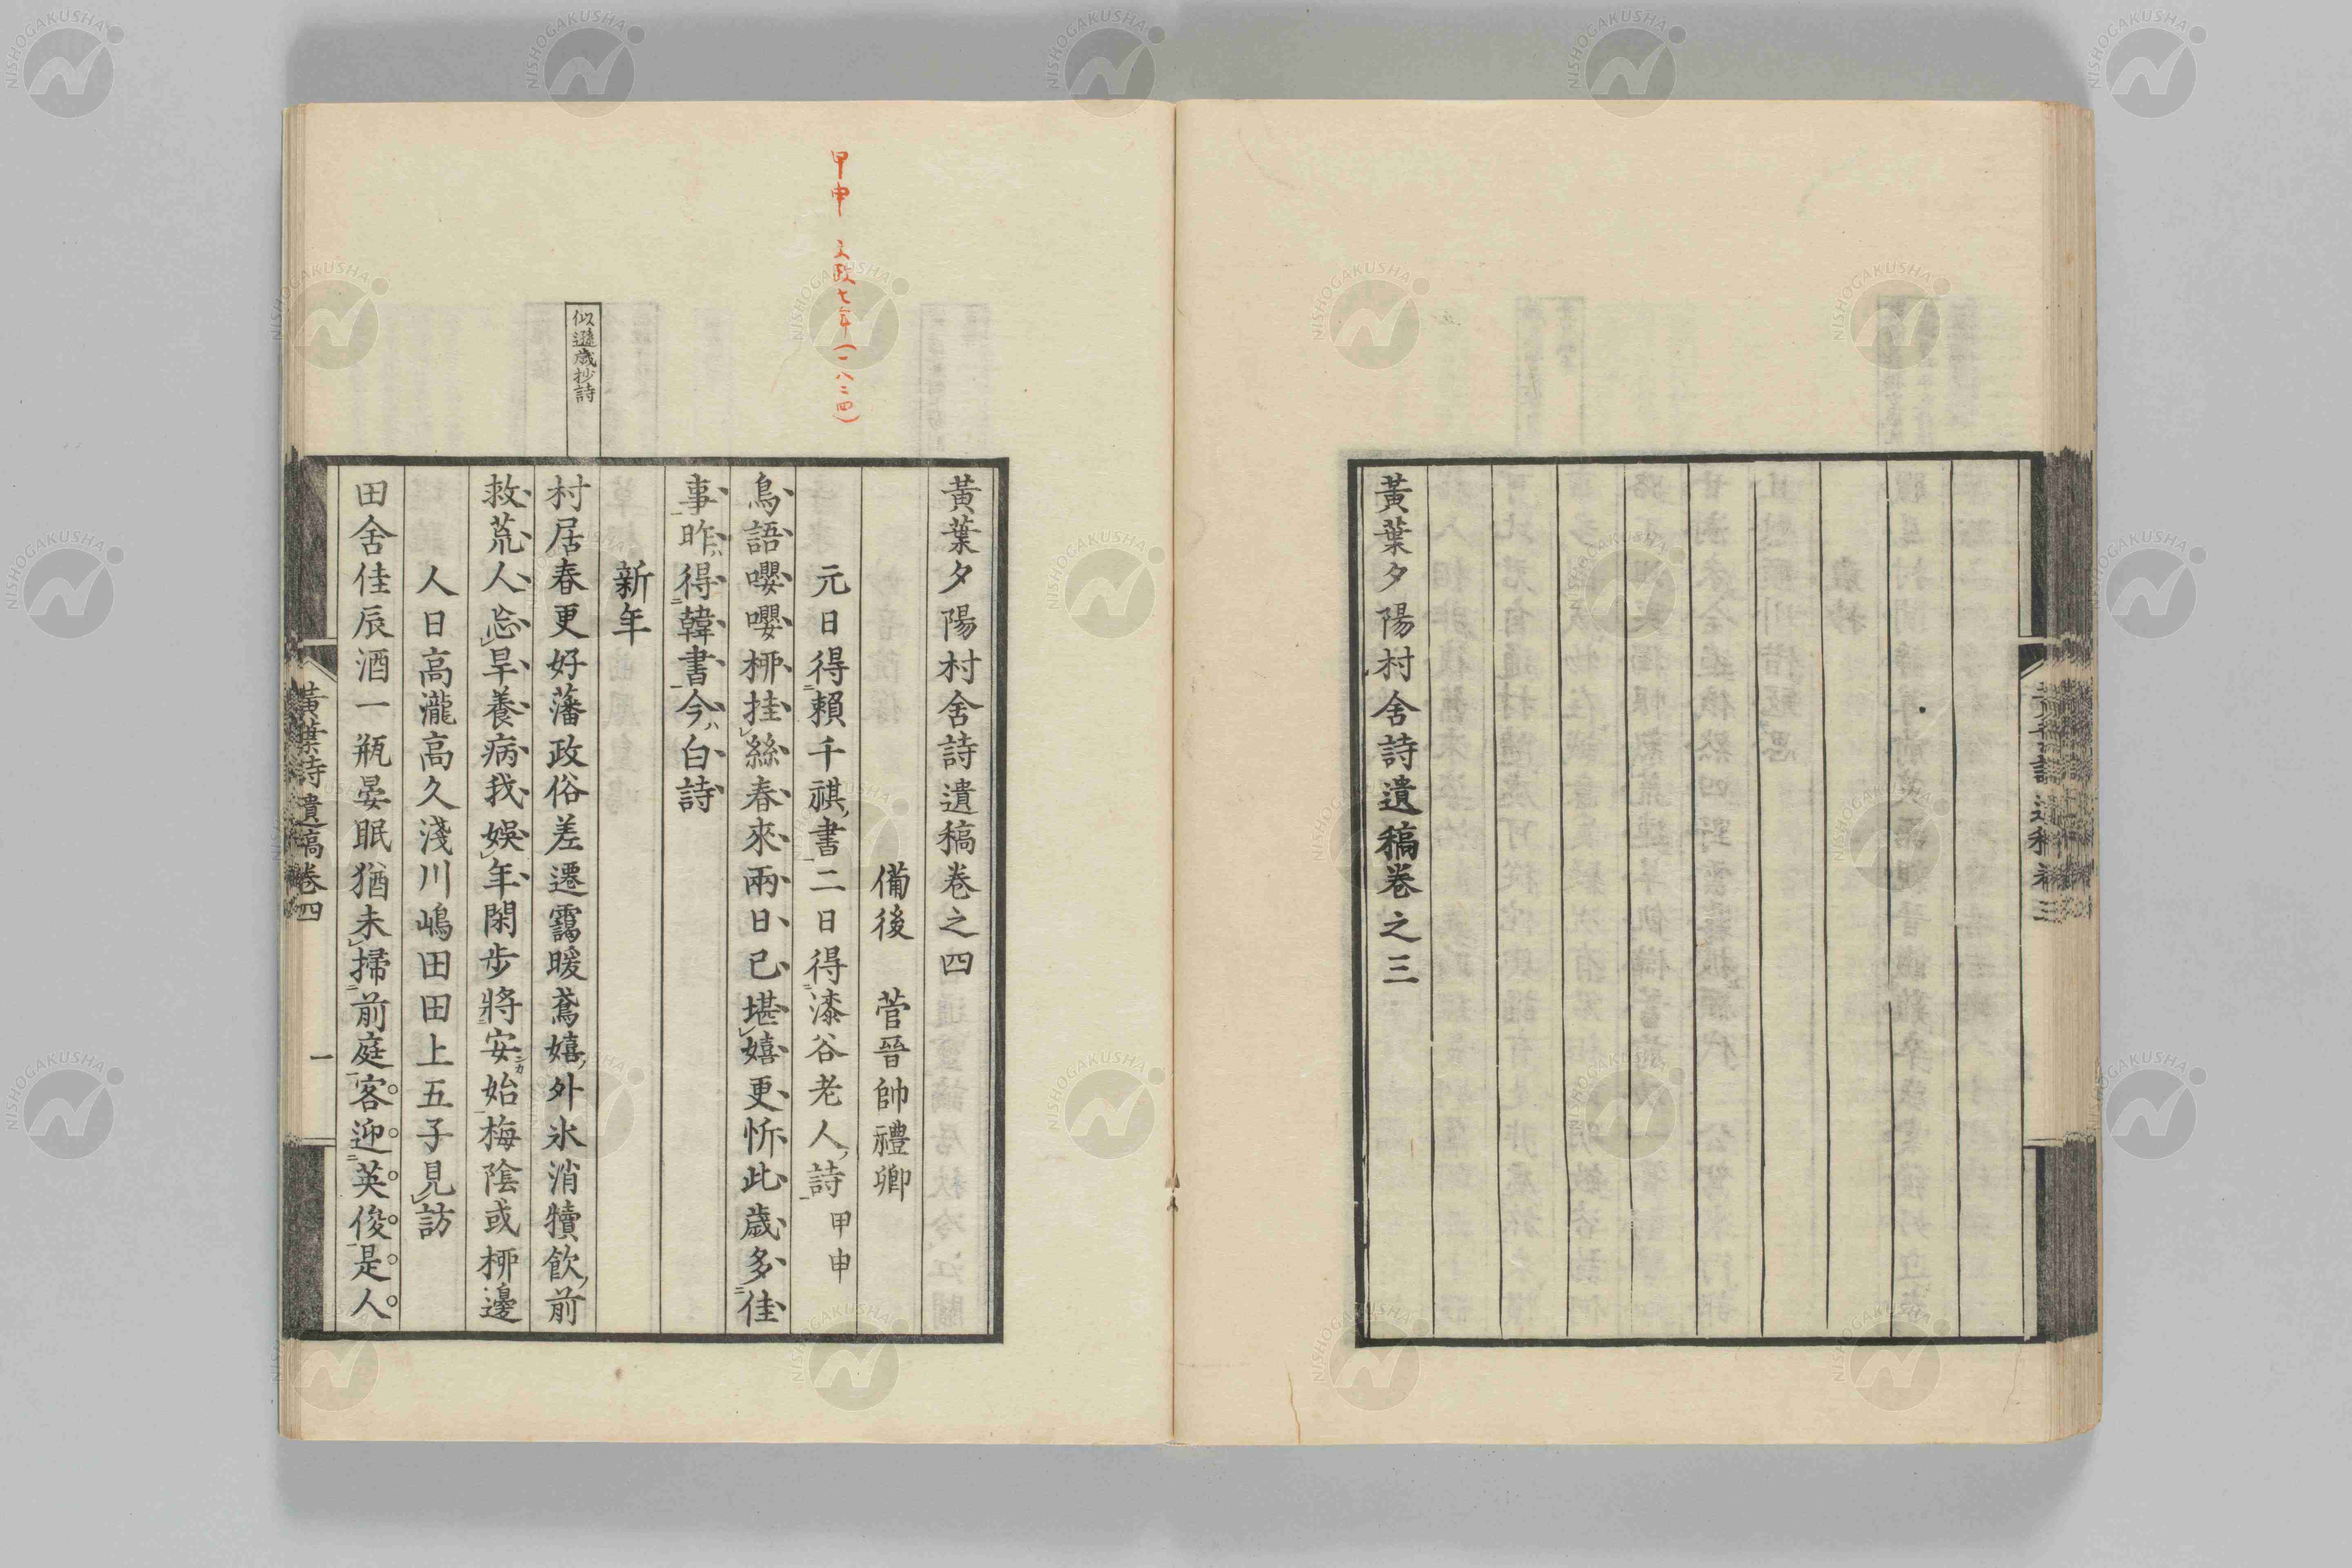 黃葉夕陽村舍詩遺稿卷之三
甲申 文政七年(一八二四)
似遜歳抄詩
黃葉夕陽村舍詩遺稿卷之四
備後 菅晉帥禮卿
元日得賴千祺書二日得漆谷老人詩 甲申
鳥語嚶嚶柳挂絲春來兩日已堪嬉更忻此歲多佳
事昨得韓書今白詩
新年
村居春更好藩政俗差遷靄暖鳶嬉外氷消犢飮前
救荒人忘旱養病我娛年閑步將安始梅陰或柳邊
人日高瀧高久淺川嶋田田上五子見訪
田舍佳辰酒一瓶晏眠猶未掃前庭客迎英俊是人
黃葉詩遺稿卷四
一
NISHOGAKUSHA